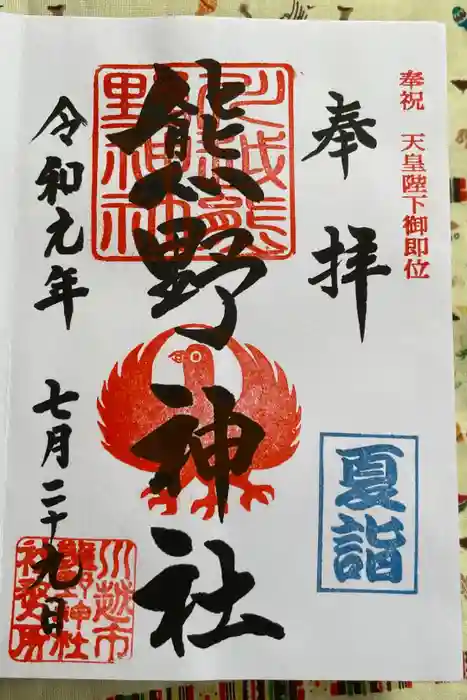 奉祝 天皇陛下御即位
奉拝
夏詣
熊野神社
川越熊野神社
令和元年
七月二十九日
川越市
熊野神社
社務所